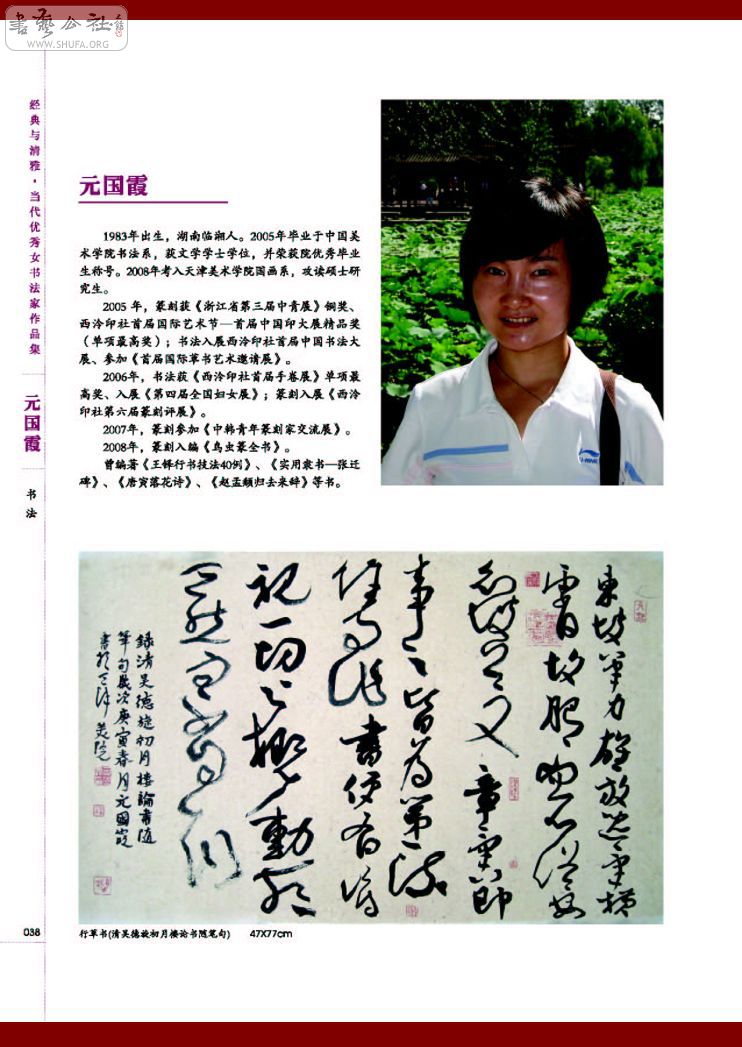 書藝公社
WWW.SHUFA.ORG
经典与清雅·当代优秀女书法家作品集
元国霞
书法
038
元国霞
1983年出生，湖南临湘人。2005年毕业于中国美
术学院书法系，获文学学士学位，并荣获院优秀毕业
生称号。2008年考入天津美术学院国画系，攻读硕士研
究生。
2005 年，篆刻获《浙江省第三届中青展》铜奖、
西泠印社首届国际艺术节—首届中国印大展精品奖
（单项最高奖）；书法入展西泠印社首届中国书法大
展、参加《首届国际草书艺术邀请展》。
2006年，书法获《西泠印社首届手卷展》单项最
高奖、入展《第四届全国妇女展》；篆刻入展《西泠
印社第六届篆刻评展》。
2007年，篆刻参加《中韩青年篆刻家交流展》。
2008年，篆刻入编《鸟虫篆全书》。
曾编著《王铎行书技法40例》、《实用隶书—张迁
碑》、《唐寅落花诗》、《赵孟頫归去来辞》等书。
東坡筆力雄放逸氣橫
霄故肥而不俗要
知坡公文章氣節
事事皆為第一流
餘事作書便有俯
視一切之概動於
天然而不自知
錄清吴德旋初月樓論書隨
筆句歲次庚寅春月元國霞
書於天津美院
行草书(清吴德旋初月楼论书随笔句) 47X77cm